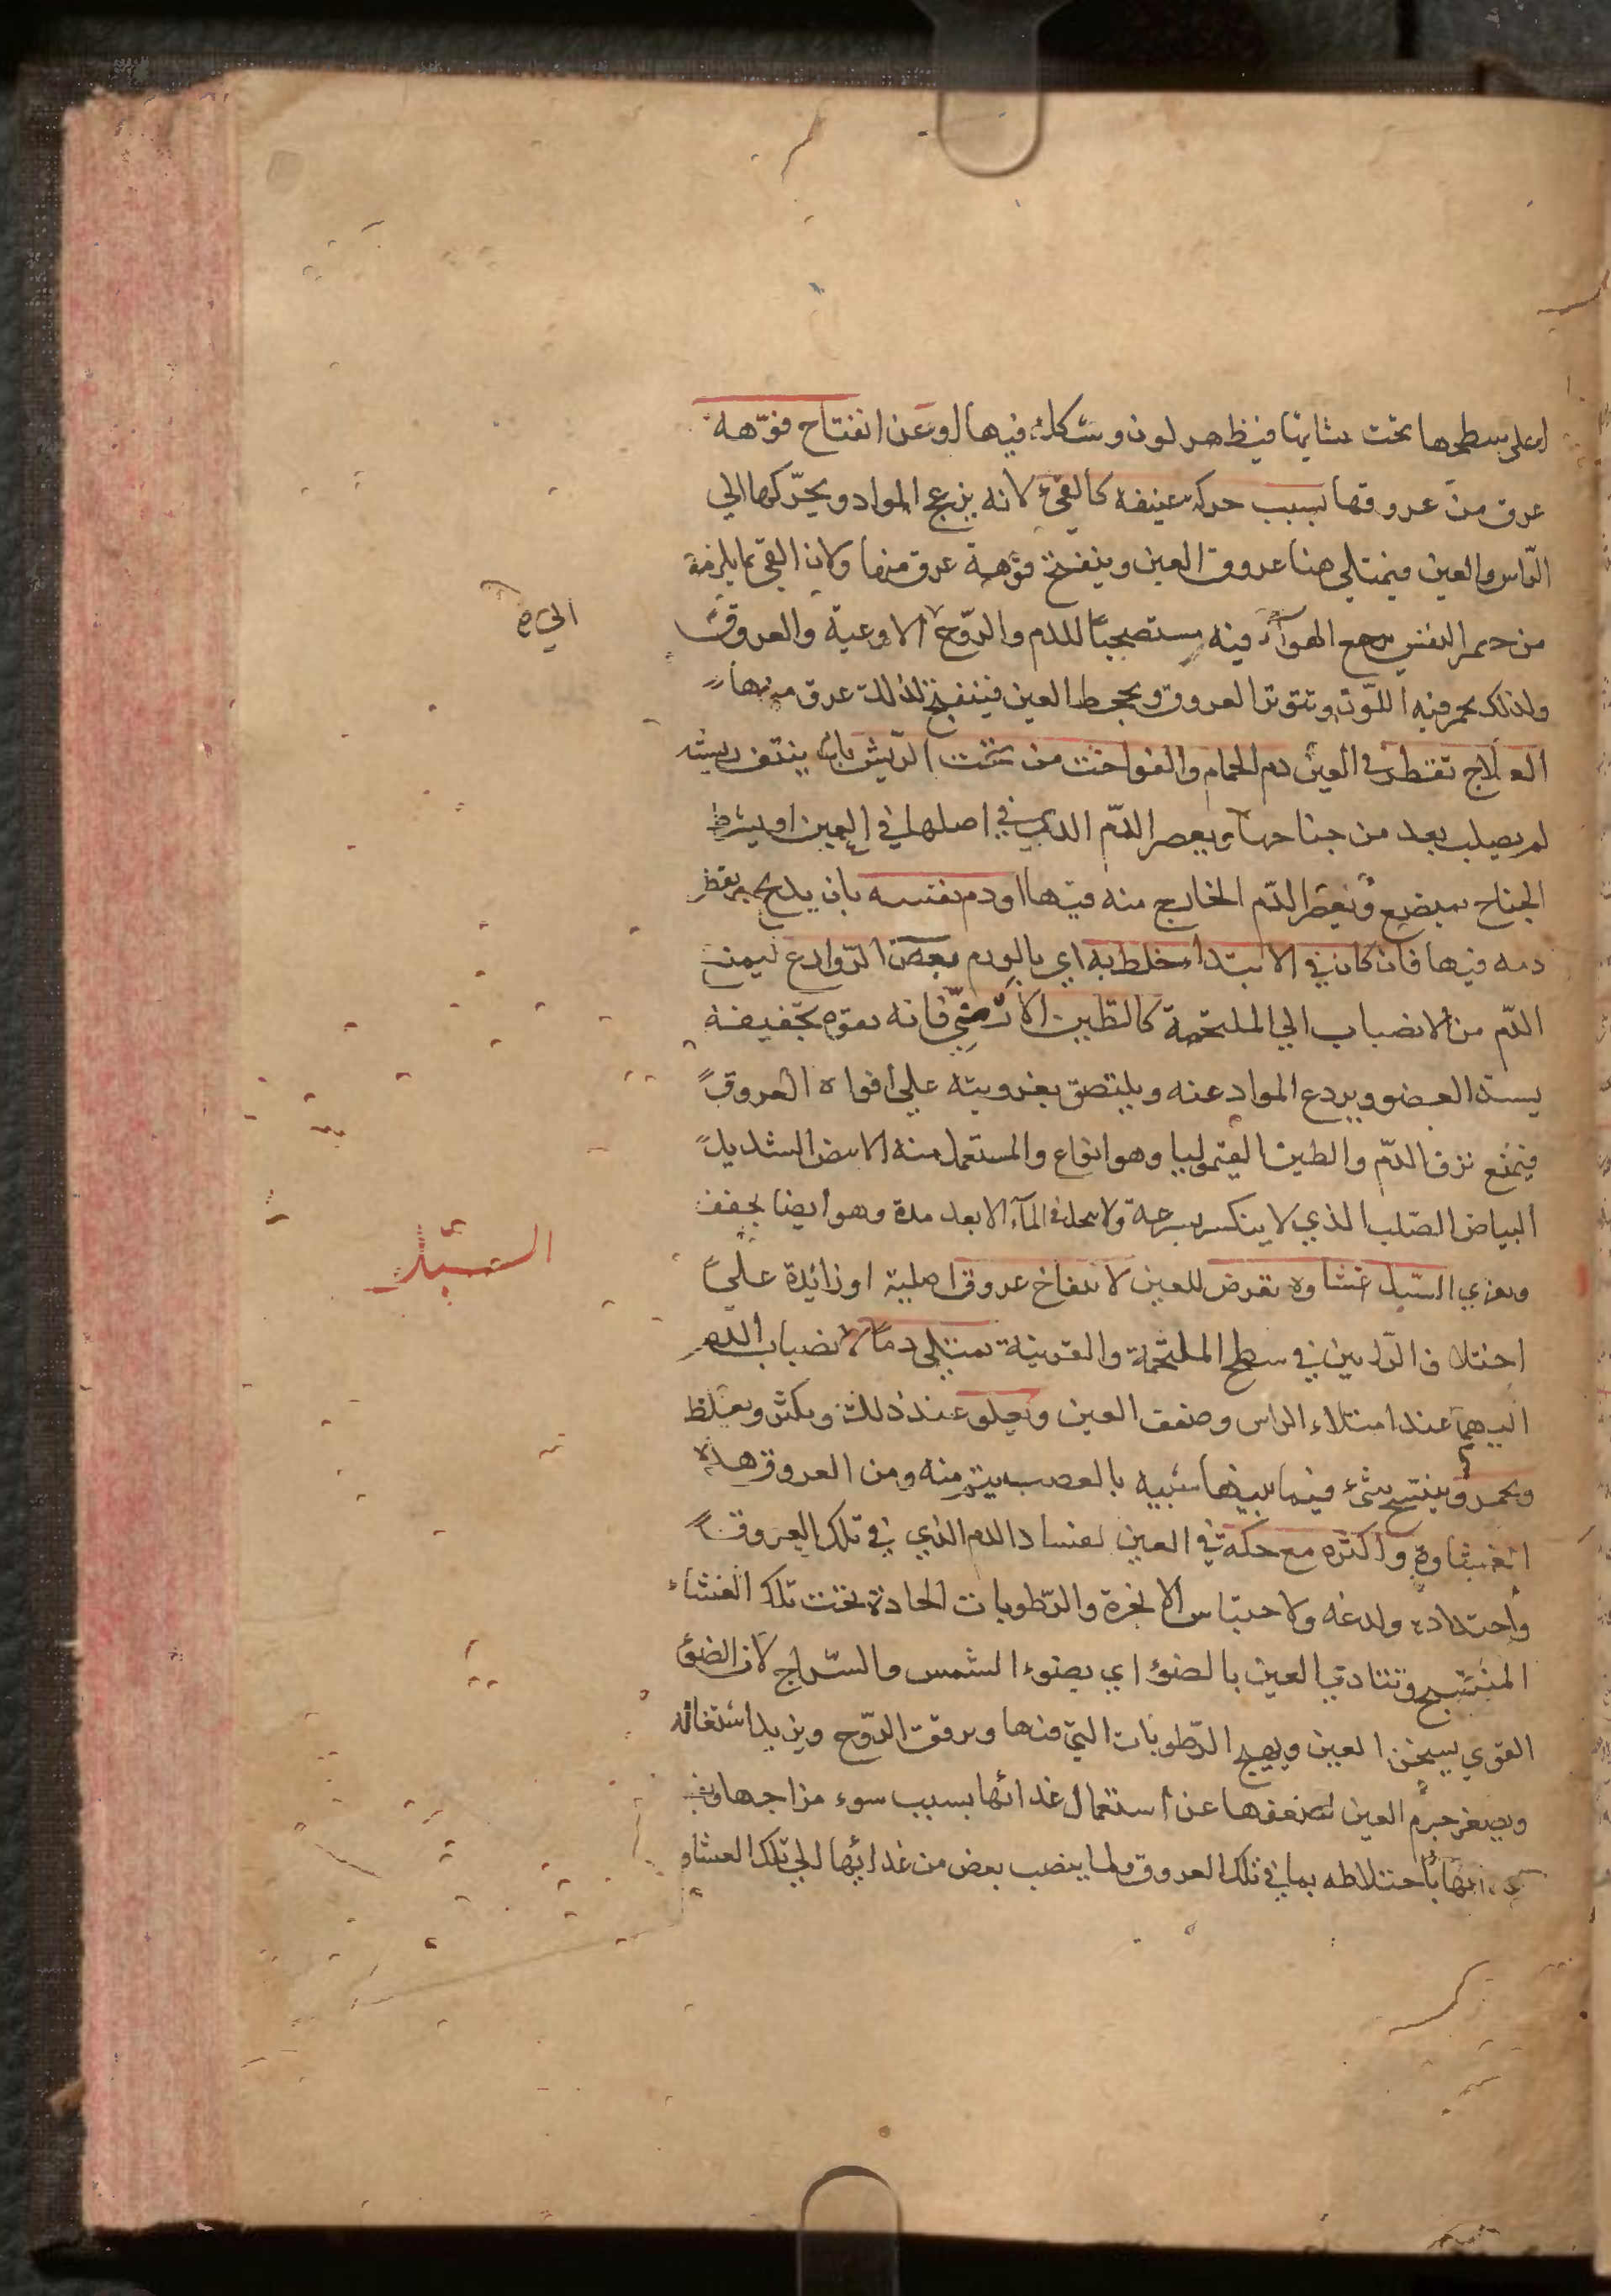 او على سطحها تحت شايئا فيظهر لون وشكله فيها او عن انفتاح فوّهه
عرق من عروقها بسبب حركة عنيفه كالقئ لانه يزعج المواد ويحرّكها الي
الرّاس والعين فيمتلي هنا عروق العين وينفتح فوّهة عرق منها ولان القي مما يلزمه
من حصر النفس يرجع الهوآء فيه مستصحباً للدم والرّوح الاوعية والعروق
الي صح
ولذلك يحمر فيه اللّون وتتوتر العروق ويجحظ العين فينفتح لذلك عرق منها
العلاج تقطر في العين دم الحمام والفواخت من تحت الرّيش بان ينتف ريشه
لم يصلب بعد من جناحها ويعصر الدّم الذي في اصلها في العين او يشرط
الجناح بمبضع ويقطر الدّم الخارج منه فيها او دم نفسه بان يذبح ويقطر
دمه فيها فان كان في الابتداء خلط به اي بالورم بعض الرّوادع ليمنع
الدّم من الانصباب الي الملتحمة كالطّين الارمنيّ فانه بقوه تجفيفه
يسدّ العضو ويردع المواد عنه ويلتصق بغرويته على افواه العروق
فيمنع نزف الدّم والطين القيموليا وهو انواع والمستعمل منه الابيض الشديد
البياض الصّلب الذي لا ينكسر بسرعة ولا ينحل في المآء الا بعد مدة وهو ايضا يجفف
ويغري السّبل غشاوه تعرض للعين لانتفاخ عروق اصلية او زائدة على
السّبل
اختلاف الرّايين في سطح الملتحمة والقرنية تمتلي دماً لانصباب الدم
اليهما عند امتلاء الراس وضعف العين وتعلو عند ذلك وتكثر وتغلظ
وتحمر وينتسج شئ فيما بينها شبيه بالعصب يتم منه ومن العروق هذه
الغشاوة واكثره مع حكة في العين لفساد الدم الذي في تلك العروق
واحتداده ولدغه ولاحتباس الابخرة والرّطوبات الحادة تحت تلك الغشاء
المنتسج وتتاذي العين بالضوء اي بضوء الشمس والسّراج لان الضوء
القوي يسخن العين ويهيج الرّطوبات التي فيها ويرقق الرّوح ويزيد اشتعاله
ويصغر جرم العين لضعفها عن استعمال غدائها بسبب سوء مزاجها
باختلاطه بما في تلك العروق ولما ينصب بعض من غدائها الي تلك الغشاو